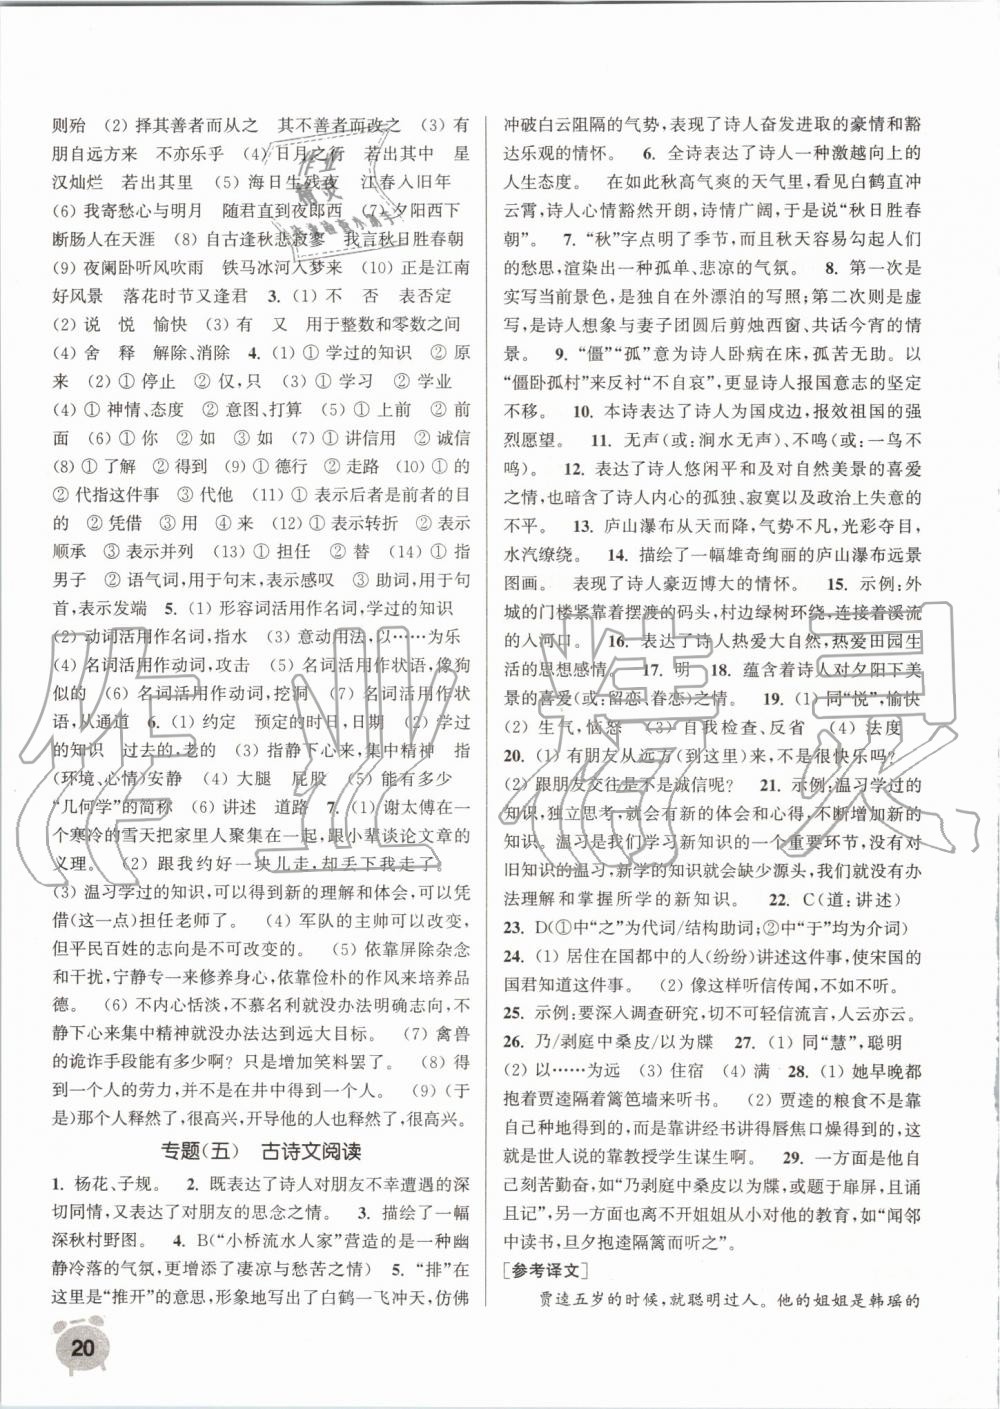 则殆　(2) 择其善者而从之　其不善者而改之　(3) 有
朋自远方来　不亦乐乎　(4) 日月之行　若出其中　星
汉灿烂　若出其里　(5) 海日生残夜　江春入旧年
(6) 我寄愁心与明月　随君直到夜郎西　(7) 夕阳西下
断肠人在天涯　(8) 自古逢秋悲寂寥　我言秋日胜春朝
(9) 夜阑卧听风吹雨　铁马冰河入梦来　(10) 正是江南
好风景　落花时节又逢君　3. (1) 不　否　表否定
(2) 说　悦　愉快　(3) 有　又　用于整数和零数之间
(4) 舍　释　解除、消除　4. (1) ① 学过的知识　② 原
来　(2) ① 停止　② 仅,只　(3) ① 学习　② 学业
(4) ① 神情、态度　② 意图、打算　(5) ① 上前　② 前
面　(6) ① 你　② 如　③ 如　(7) ① 讲信用　② 诚信
(8) ① 了解　② 得到　(9) ① 德行　② 走路　(10) ① 的
② 代指这件事　③ 代他　(11) ① 表示后者是前者的目
的　② 凭借　③ 用　④ 来　(12) ① 表示转折　② 表示
顺承　③ 表示并列　(13) ① 担任　② 替　(14) ① 指
男子　② 语气词,用于句末,表示感叹　③ 助词,用于句
首,表示发端　5. (1) 形容词活用作名词,学过的知识
(2) 动词活用作名词,指水　(3) 意动用法,以……为乐
(4) 名词活用作动词,攻击　(5) 名词活用作状语,像狗
似的　(6) 名词活用作动词,挖洞　(7) 名词活用作状
语,从通道　6. (1) 约定　预定的时日,日期　(2) 学过
的知识　过去的,老的　(3) 指静下心来,集中精神　指
(环境、心情)安静　(4) 大腿　屁股　(5) 能有多少
“几何学”的简称　(6) 讲述　道路　7. (1) 谢太傅在一
个寒冷的雪天把家里人聚集在一起,跟小辈谈论文章的
义理。　(2) 跟我约好一块儿走,却丢下我走了。
(3) 温习学过的知识,可以得到新的理解和体会,可以凭
借(这一点)担任老师了。　(4) 军队的主帅可以改变,
但平民百姓的志向是不可改变的。　(5) 依靠屏除杂念
和干扰,宁静专一来修养身心,依靠俭朴的作风来培养品
德。　(6) 不内心恬淡,不慕名利就没办法明确志向,不
静下心来集中精神就没办法达到远大目标。　(7) 禽兽
的诡诈手段能有多少啊？只是增加笑料罢了。　(8) 得
到一个人的劳力,并不是在井中得到一个人。　(9) (于
是)那个人释然了,很高兴,开导他的人也释然了,很高兴。
专题(五)　古诗文阅读
1. 杨花、子规。　2. 既表达了诗人对朋友不幸遭遇的深
切同情,又表达了对朋友的思念之情。　3. 描绘了一幅
深秋村野图。　4. B(“小桥流水人家”营造的是一种幽
静冷落的气氛,更增添了凄凉与愁苦之情)　5. “排”在
这里是“推开”的意思,形象地写出了白鹤一飞冲天,仿佛
20
冲破白云阻隔的气势,表现了诗人奋发进取的豪情和豁
达乐观的情怀。　6. 全诗表达了诗人一种激越向上的
人生态度。　在如此秋高气爽的天气里,看见白鹤直冲
云霄,诗人心情豁然开朗,诗情广阔,于是写出“秋日胜春
朝”。　7. “秋”字点明了季节,而且秋天容易勾起人们
的愁思,渲染出一种孤单、悲凉的气氛。　8. 第一次是
实写当前景色,是独自在外漂泊的写照;第二次则是虚
写,是诗人想象与妻子团圆后剪烛西窗、共话今宵的情
景。　9. “僵”“孤”意为诗人卧病在床,孤苦无助。以
“僵卧孤村”来反衬“不自哀”,更显诗人报国意志的坚定
不移。　10. 本诗表达了诗人为国戍边,报效祖国的强
烈愿望。　11. 无声(或:涧水无声)、不鸣(或:一鸟不
鸣)。　12. 表达了诗人悠闲平和及对自然美景的喜爱
之情,也暗含了诗人内心的孤独、寂寞以及政治上失意的
不平。　13. 庐山瀑布从天而降,气势不凡,光彩夺目,
水汽缭绕。　14. 描绘了一幅雄奇绚丽的庐山瀑布远景
图画。　表现了诗人豪迈博大的情怀。　15. 示例:外
城的门楼紧靠着摆渡的码头,村边绿树环绕,连接着溪流
的入河口。　16. 表达了诗人热爱大自然,热爱田园生
活的思想感情。　17. 明　18. 蕴含着诗人对夕阳下美
景的喜爱(或:留恋、眷恋)之情。　19. (1) 同“悦”,愉快
(2) 生气,恼怒　(3) 自我检查、反省　(4) 法度
20. (1) 有朋友从远方(到这里)来,不是很快乐吗？
(2) 跟朋友交往是不是诚信了呢？　21. 示例:温习学过的
知识,独立思考,就会有新的体会和心得,不断增加新的
知识。温习是我们学习新知识的一个重要环节,没有对
旧知识的温习,新的知识就会缺少源头,我们就没有办
法理解和掌握所学的新知识。　22. C(道:讲述)
23. D(①中“之”为代词/结构助词;②中“于”均为介词)
24. (1) 居住在国都中的人(纷纷)讲述这件事,使宋国的
国君知道这件事。　(2) 像这样听信传闻,不如不听。
25. 示例:要深入调查研究,切不可轻信流言,人云亦云。
26. 乃/剥庭中桑皮/以为牒　27. (1) 同“慧”,聪明
(2) 以……为远　(3) 住宿　(4) 满　28. (1) 她早晚都
抱着贾逵隔着篱笆墙来听书。　(2) 贾逵的粮食不是自
己种地得到的,而是靠讲经书讲得唇焦口燥得到的,这就
是世人说的靠教授学生谋生啊。　29. 一方面是他自
己刻苦勤奋,如“乃剥庭中桑皮以为牒,或题于扉屏,且诵
且记”;另一方面也离不开姐姐从小对他的教育,如“闻邻
中读书,旦夕抱逵隔篱而听之”。
[参考译文]
贾逵五岁的时候,就聪明过人。他的姐姐是韩瑶的
作业精灵